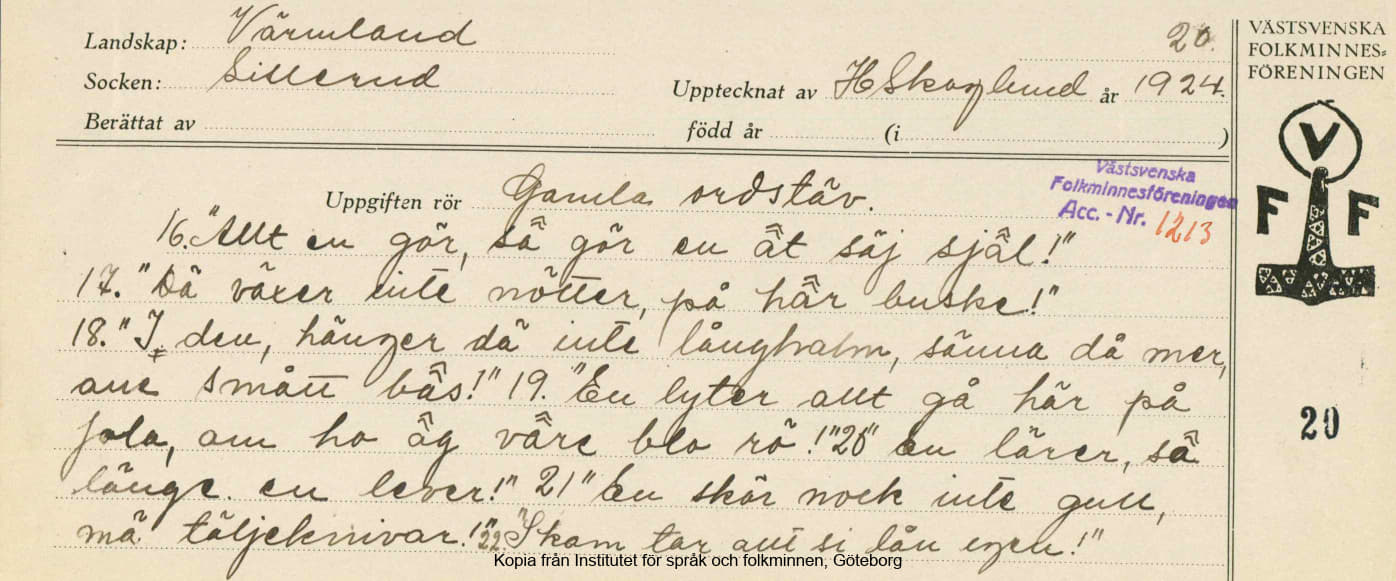 Landskap: Värmland
20.
Socken: Sillerud
Upptecknat av H Skoglund år 1924.
Berättat av
född år (i )
VÄSTSVENSKA
FOLKMINNES=
FÖRENINGEN
V
F F
20
Västsvenska
Folkminnesföreningen
Acc. - Nr. 1213
Uppgiften rör Gamla ordstäv.
16. "Allt en gör, så gör en åt säj själ!"
17. "Dä växer inte nötter, på här buske!"
18. "I den, hänger dä inte långhalm, sänna då mer,
ane smått bås!" 19. "En lyter allt gå här på
jola, om ho äg våre blo rö!" 20 "En lärer, så
länge en lever!" 21 "En skär nock inte gull,
mä täljeknivar!" 22. "Skam tar allt si lön igen!"
Kopia från Institutet för språk och folkminnen, Göteborg